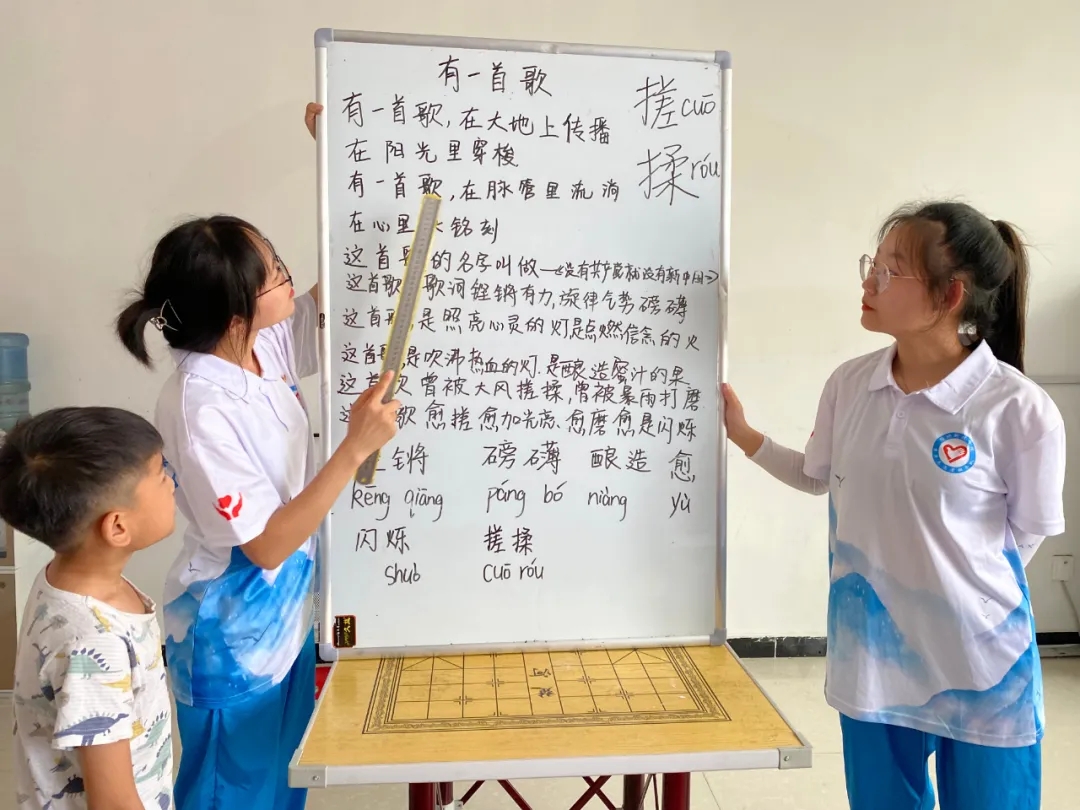 有一首歌
搓 cuō
揉 róu
有一首歌,在大地上传播
在阳光里穿梭
有一首歌,在脉管里流淌
在心里 铭刻
这首 的名字叫做—《没有共产党就没有新中国》
这首歌 歌词铿锵有力,旋律气势磅礴
这首 是照亮心灵的灯是点燃信念的火
这首 是吹沸热血的灯.是酿造蜜汁的果
这首 曾被大风搓揉,曾被暴雨打磨
歌愈搓愈加光亮、愈磨愈是闪烁
锵 磅礴 酿造 愈
kēng qiāng páng bó niàng yù
闪烁 搓揉
shuò cuō róu